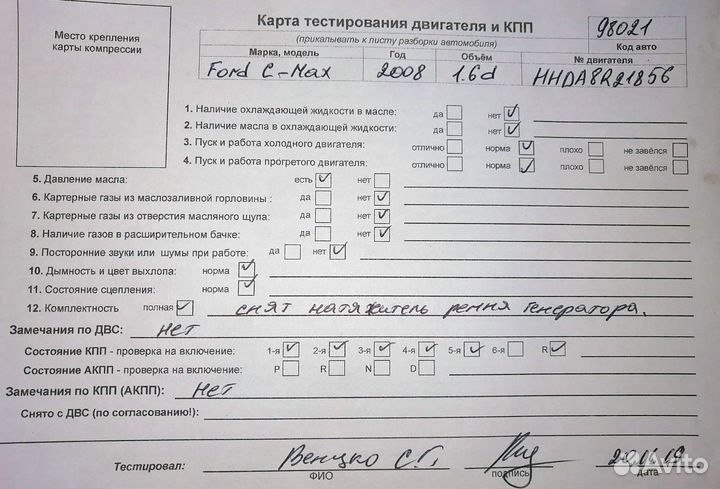 Место крепления карты компрессии
Карта тестирования двигателя и КПП
(прикалывать к листу разборки автомобиля)
98021
Код авто
Марка, модель Год Объём № двигателя
Ford C-Max 2008 1.6d HHDA8R21856
1. Наличие охлаждающей жидкости в масле: да нет ✓
2. Наличие масла в охлаждающей жидкости: да нет ✓
3. Пуск и работа холодного двигателя: отлично норма ✓ плохо не завёлся
4. Пуск и работа прогретого двигателя: отлично норма ✓ плохо не завёлся
5. Давление масла: есть ✓ нет
6. Картерные газы из маслозаливной горловины : да нет ✓
7. Картерные газы из отверстия масляного щупа: да нет ✓
8. Наличие газов в расширительном бачке: да нет ✓
9. Посторонние звуки или шумы при работе: да нет ✓
10. Дымность и цвет выхлопа: норма ✓
11. Состояние сцепления: норма ✓
12. Комплектность полная ✓ снят натяжитель ремня генератора.
Замечания по ДВС: нет
Состояние КПП - проверка на включение: 1-я ✓ 2-я ✓ 3-я ✓ 4-я ✓ 5-я ✓ 6-я R ✓
Состояние АКПП - проверка на включение: P R N D
Замечания по КПП (АКПП): нет
Снято с ДВС (по согласованию!):
Тестировал: С.Г.
ФИО подпись дата
Avito